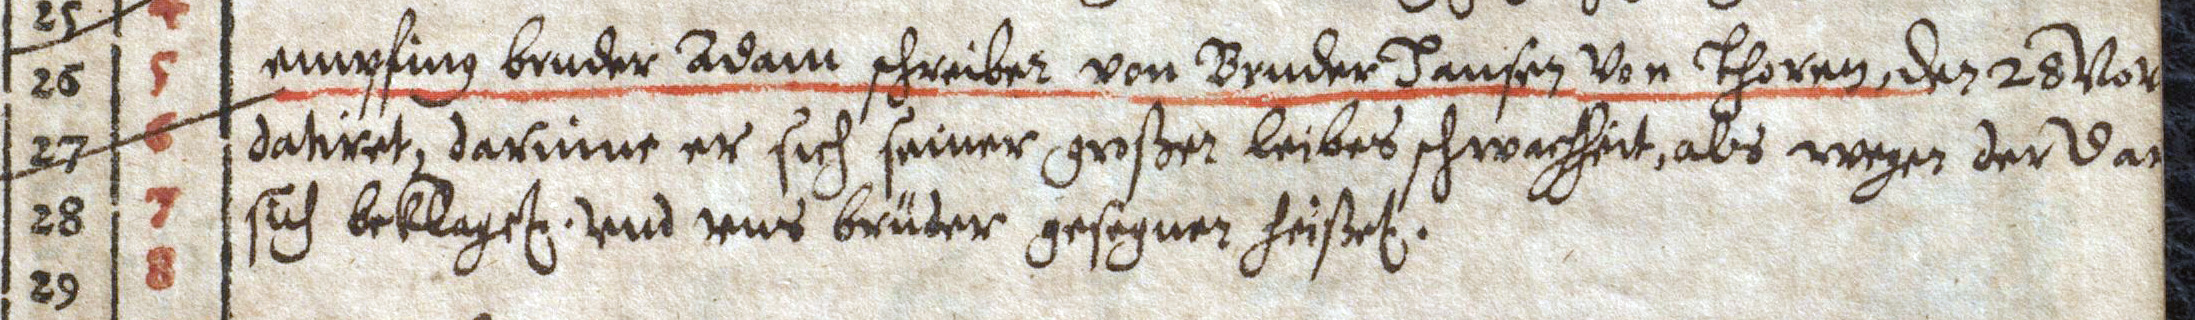 25 4
26 5 empfing bruder Adam schreiben von Bruder Jansen von Thoren, den 28 Nov
27 6 datiret, darinne er sich seiner großen leibes schwachheit, als wegen der
28 7 sich beklaget. Und uns brüder gesegnen heißet.
29 8